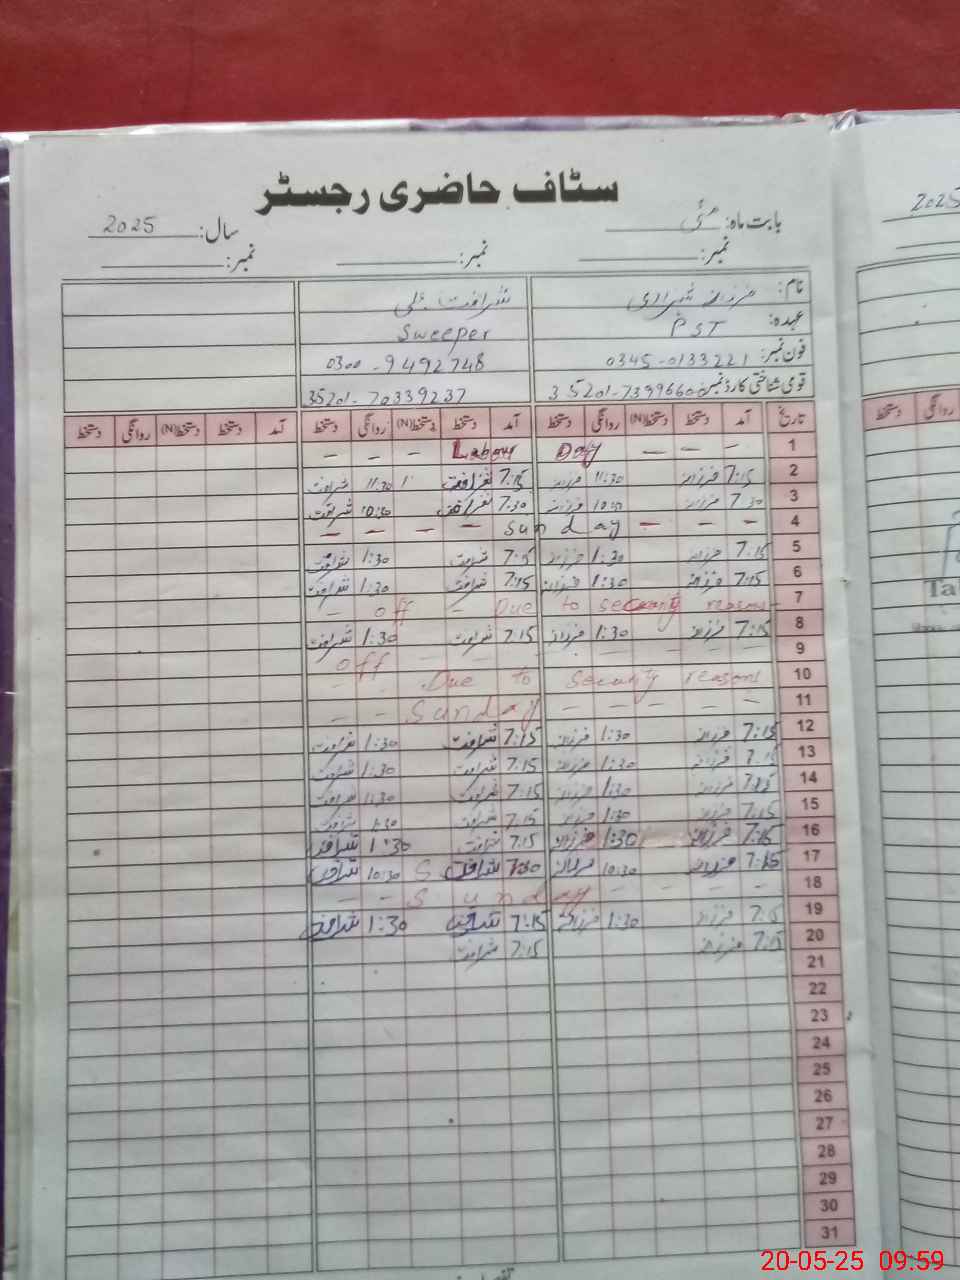 سٹاف حاضری رجسٹر
بابت ماہ: مئی سال: 2025
نمبر: نمبر: نمبر:
نام: شرافت علی
عہدہ: PST Sweeper
فون نمبر: 0345-0133221 0300-9492748
قومی شناختی کارڈ نمبر: 35201-70339237
تاریخ آمد دستخط دستخط(N) روانگی دستخط آمد دستخط دستخط(N) روانگی دستخط آمد دستخط دستخط(N) روانگی دستخط
1 — — — Labour Day — — —
2 7:15 فرزانہ 11:30 فرزانہ 7:15 شرافت 11:30 شرافت
3 7:30 فرزانہ فرزانہ 7:30 شرافت 10:30 شرافت
4 — — — — Sunday — — —
5 7:15 فرزانہ 1:30 فرزانہ 7:15 شرافت 1:30 شرافت
6 7:15 فرزانہ 1:30 فرزانہ 7:15 شرافت 1:30 شرافت
7 — off — Due to security reasons —
8 7:15 فرزانہ 1:30 فرزانہ 7:15 شرافت 1:30 شرافت
9 off — — — — — — —
10 — — Due to security reasons
11 — — Sunday — — — —
12 7:15 فرزانہ 1:30 فرزانہ 7:15 شرافت 1:30 شرافت
13 7:15 فرزانہ 1:30 فرزانہ 7:15 شرافت 1:30 شرافت
14 7:15 فرزانہ 1:30 فرزانہ 7:15 شرافت 1:30 شرافت
15 7:15 فرزانہ 1:30 فرزانہ 7:15 شرافت 1:30 شرافت
16 7:15 فرزانہ 1:30 فرزانہ 7:15 شرافت 1:30 شرافت
17 7:15 فرزانہ 10:30 فرزانہ 7:30 شرافت S 10:30 شرافت
18 — — Sunday — — — —
19 7:15 فرزانہ 1:30 فرزانہ 7:15 شرافت 1:30 شرافت
20 7:15 فرزانہ 7:15 شرافت
21
22
23
24
25
26
27
28
29
30
31
2025
دستخط روانگی
Ta
20-05-25 09:59